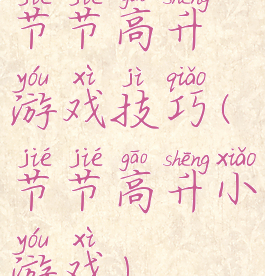 jié jié gāo shēng
节节高升
yóu xì jì qiǎo
游戏技巧(
jié jié gāo shēng xiǎo
节节高升小
yóu xì
游戏)